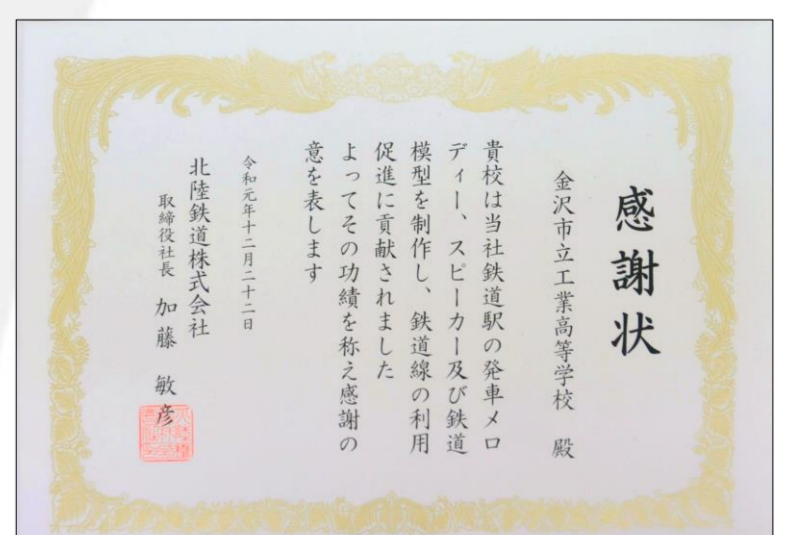 感謝状
金沢市立工業高等学校 殿
貴校は当社鉄道駅の発車メロ
ディー、スピーカー及び鉄道
模型を制作し、鉄道線の利用
促進に貢献されました
よってその功績を称え感謝の
意を表します
令和元年十二月二十二日
北陸鉄道株式会社
取締役社長 加藤 敏彦